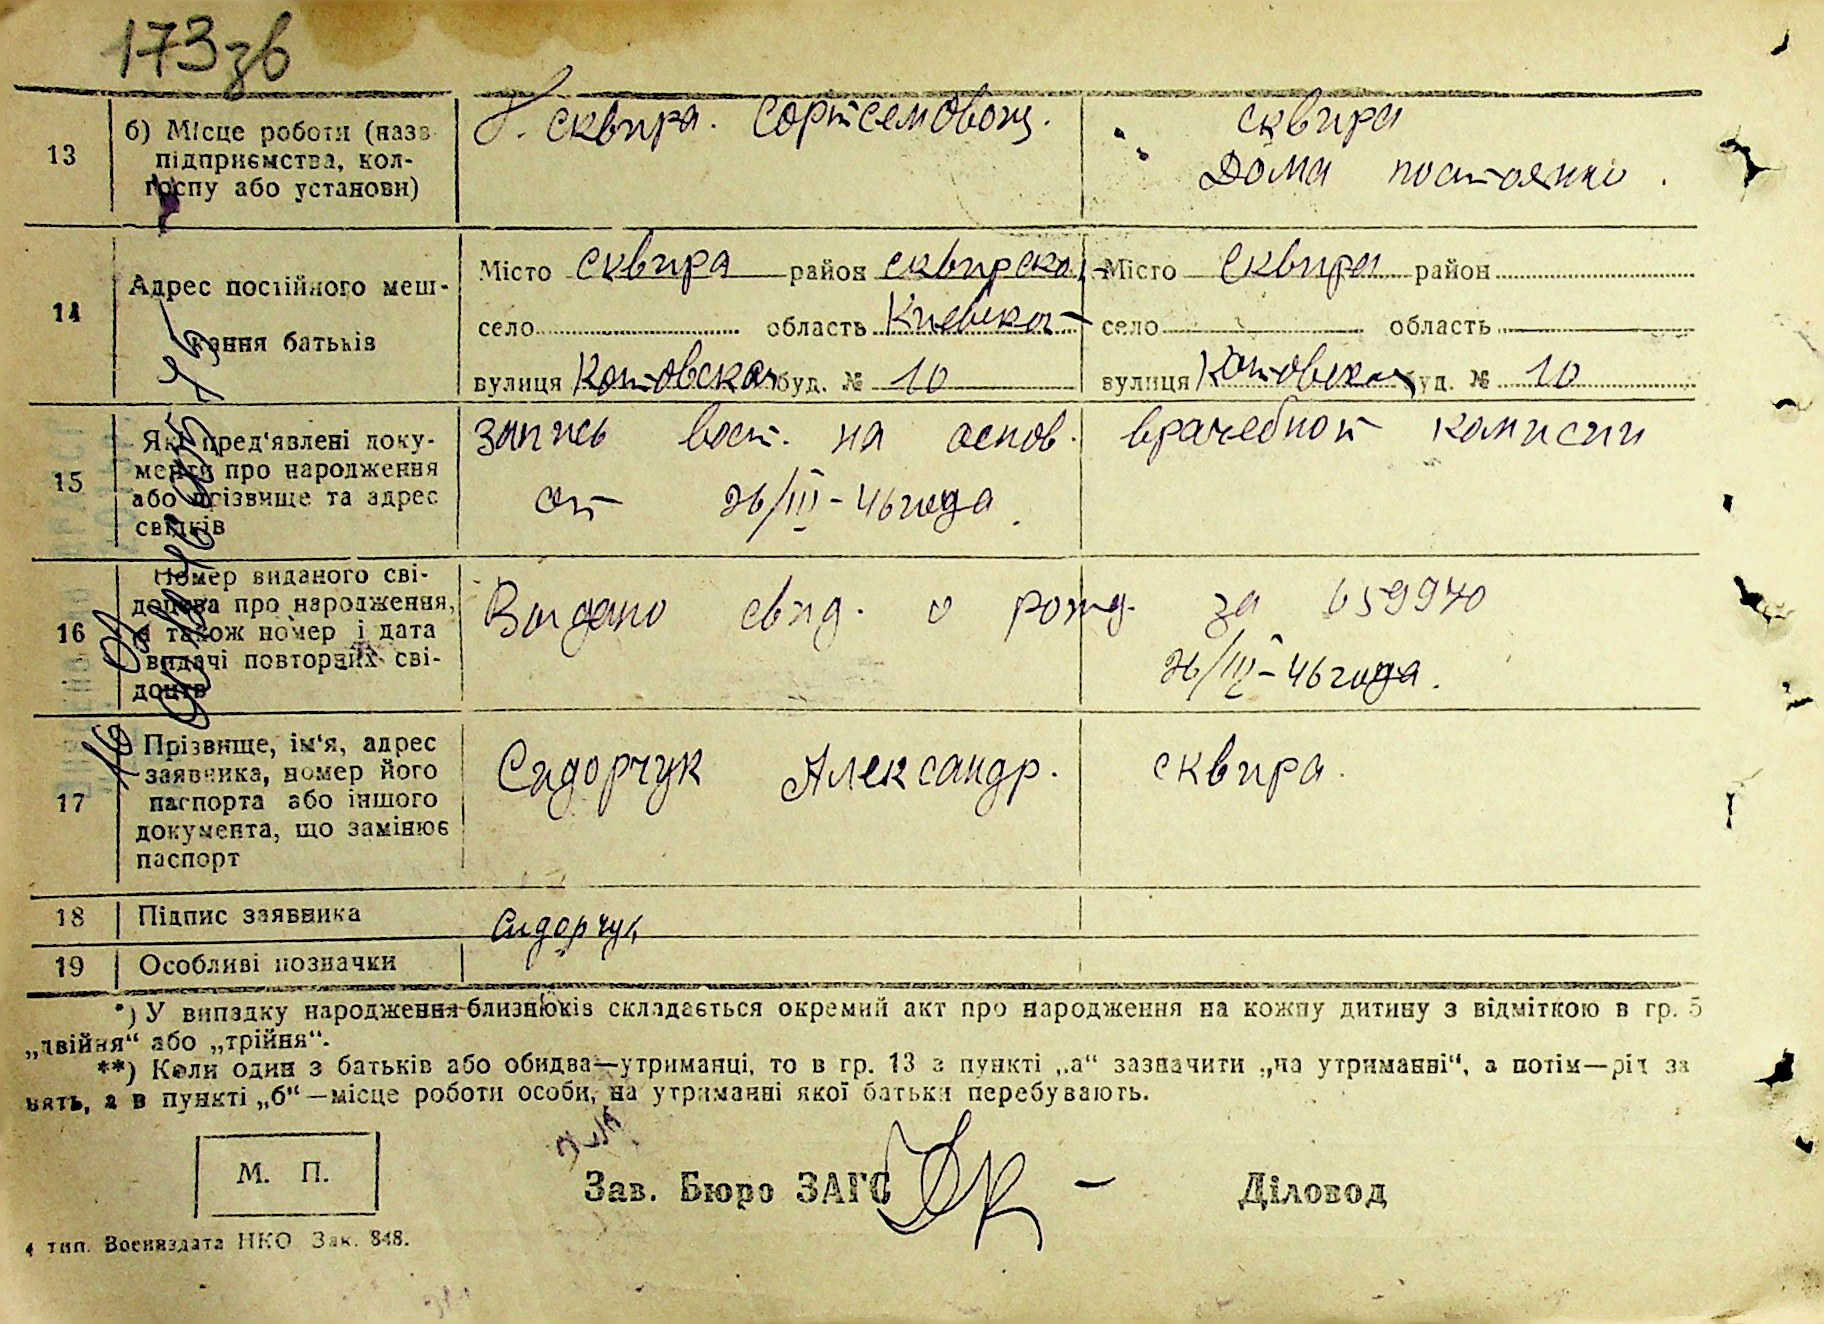 173зв
13
б) Місце роботи (назв
підприємства, кол-
госпу або установи)
г. сквира. Сортсемовощ.
сквира
Дома постоянно.
14
Адрес постійного меш-
кання батьків
Місто сквира район сквирско
село область Киевская
вулиця Котовская буд. № 10
Місто сквира район
село область
вулиця Котовская буд. № 10
15
Які пред'явлені доку-
менти про народження
або прізвище та адрес
свідків
запись вост. на основ. врачебной комисии
от 26/III-46 года.
16
Номер виданого сві-
доцтва про народження,
а також номер і дата
видачі повторних сві-
доцтв
Выдано свид. о рожд. за 659970
26/III-46 года.
17
Прізвище, ім'я, адрес
заявника, номер його
паспорта або іншого
документа, що замінює
паспорт
Сидорчук Александр. сквира.
18
Підпис заявника
Сидорчук
19
Особливі позначки
*) У випадку народження близнюків складається окремий акт про народження на кожну дитину з відміткою в гр. 5
„двійня“ або „трійня“.
**) Коли один з батьків або обидва—утриманці, то в гр. 13 в пункті „а“ зазначити „на утриманні“, а потім—рід за
нять, а в пункті „б“—місце роботи особи, на утриманні якої батьки перебувають.
М. П.
Зав. Бюро ЗАГС
Діловод
4 тип. Воениздата НКО Зак. 848.